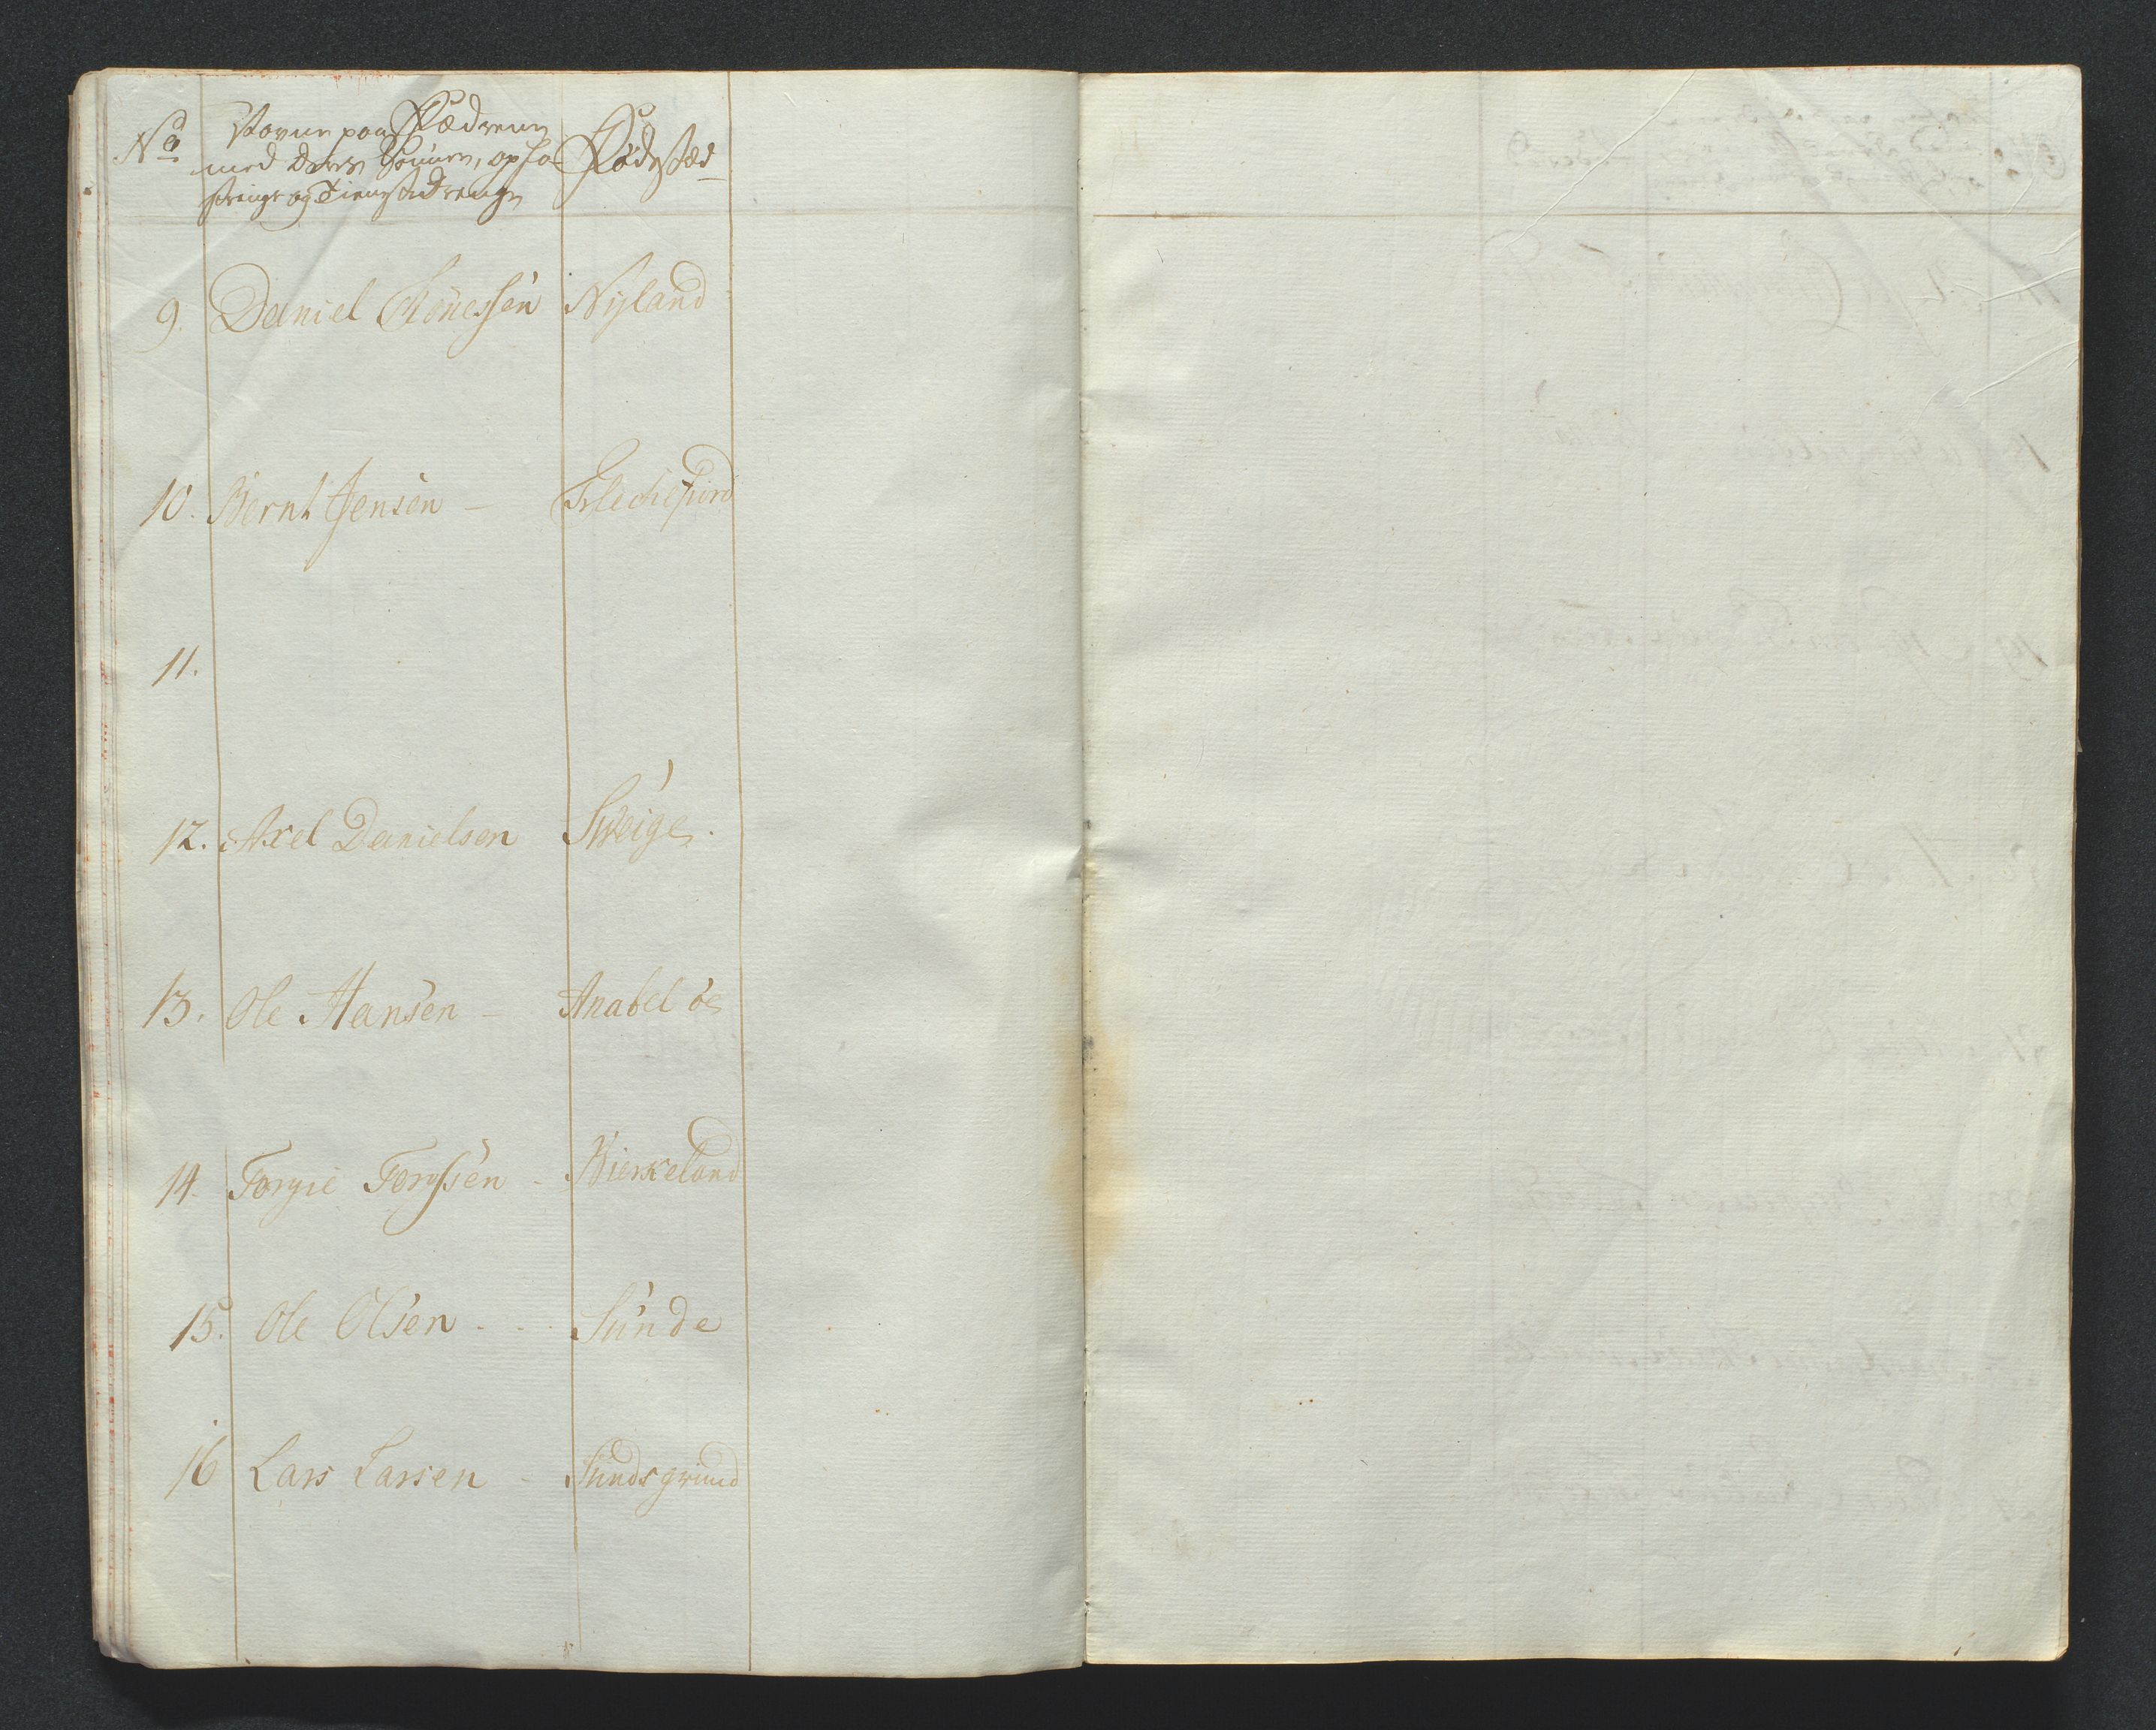 No
Navne paa Fædrene
med deres Sönner, opfo-
stringe og Tienestedrenge
Födested
9. Daniel Tönessen Nyland
10. Bernt Jensen – Flechefiord
11.
12. Axel Danielsen Sweige.
13. Ole Hansen – Anabel öe
14. Torgie Torgssen - Birkeland
15. Ole Olsen - - Sunde
16 Lars Larsen - Sundsgrund